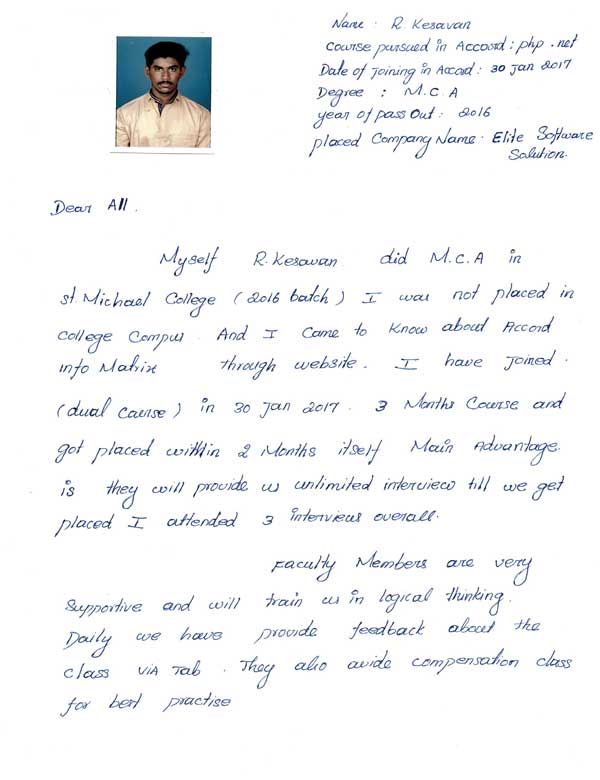 Name : R. Kesavan
Course pursued in Accord : php .net
Date of joining in Accord : 30 Jan 2017
Degree : M.C.A
year of pass Out : 2016
placed Company Name : Elite Software
Solution.
Dear All.
Myself R. Kesavan did M.C.A in
st. Michael College (2016 batch) I was not placed in
college Compus. And I Came to Know about Accord
info Matrix through website. I have joined.
(dual Caurse) in 30 Jan 2017. 3 Months Course and
got placed within 2 Months itself Main Advantage.
is they will provide us unlimited interview till we get
placed I attended 3 interviews overall.
Faculty Members are very
Supportive and will train us in logical thinking.
Daily we have provide feedback about the
class ViA Tab. They also avide compensation class
for best practise